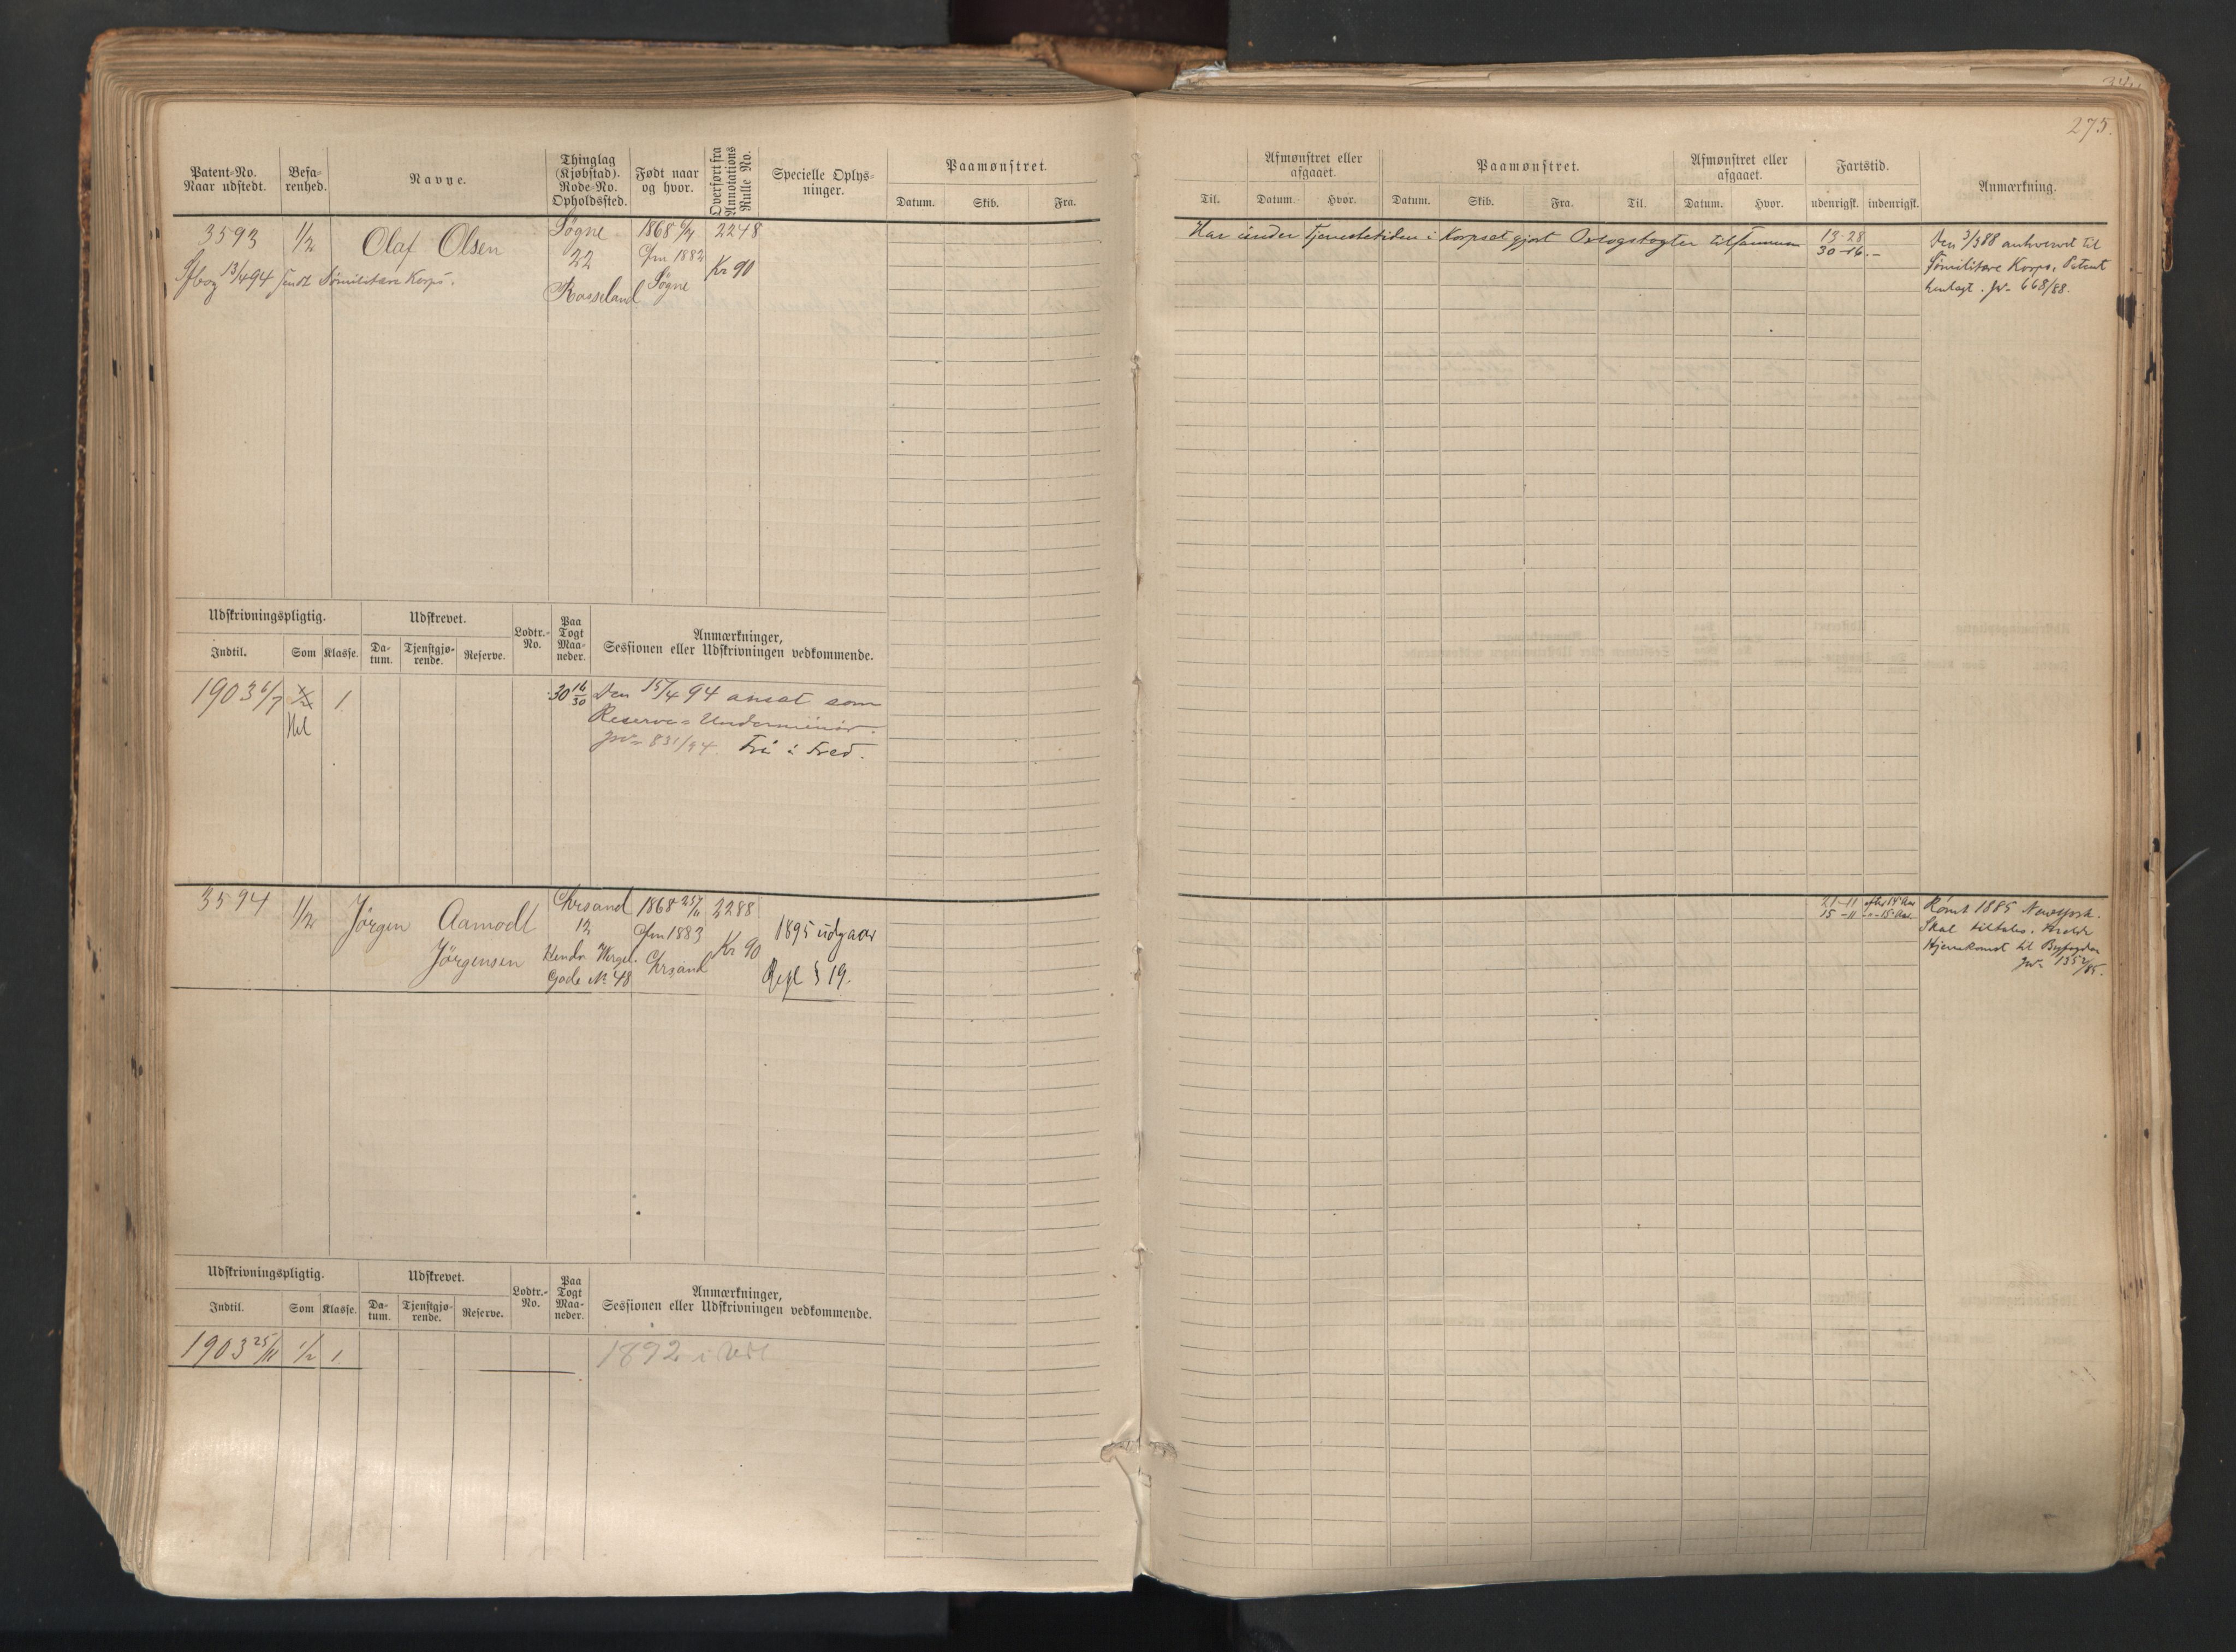 275.
Patent-No.
Naar udstedt.
Befa-
renhed.
Navne.
Thinglag
(Kjøbstad).
Rode-No.
Opholdssted.
Født naar
og hvor.
Overført fra
Annotations
Rulle No.
Specielle Oplys-
ninger.
Paamønstret.
Datum. Skib. Fra.
Til.
Afmønstret eller
afgaaet.
Datum. Hvor.
Paamønstret.
Datum. Skib. Fra. Til.
Afmønstret eller
afgaaet.
Datum. Hvor.
Fartstid.
udenrigsk. indenrigsk.
Anmærkning.
3593 1/2 Olaf Olsen
13/4 94 sendt Sömilitære Korps.
Søgne
22
Rosseland
1868 6/7
Om 1882
Søgne
2248
Kr 90
Har under Tjenestetiden i Korpset gjort Orlogstogter tilsammen
13-28
30-16.-
Den 3/3 88 anhvervet til
Sömilitære Korps. Patent
henlagt. Jv. 668/88.
Udskrivningspligtig.
Indtil. Som Klasse.
Udskrevet.
Da-
tum.
Tjenstgjø-
rende.
Reserve.
Lodtr.-
No.
Paa
Togt
Maa-
neder.
Anmærkninger,
Sessionen eller Udskrivningen vedkommende.
1903 6/7 1/2 1
Hel
30 16/30
Den 15/4 94 ansat som
Reserve-Underminör.
Jv. 831/94 Fri i Fred.
3594 1/2 Jörgen Aamodt
Jörgensen
Chrsand
12
Hendr. Wergel.
Gade No 48
1868 25/11
Om 1883
Chrsand
2288
Kr 90
1895 udgaar
Regl § 19.
21-11 efter 14 Aar
15-11 -"- 15 Aar
Rømt 1885 Newyork.
Skal tiltales.
Hjemkomst til Byfogden
Jv. 1352/85.
Udskrivningspligtig.
Indtil. Som Klasse.
Udskrevet.
Da-
tum.
Tjenstgjø-
rende.
Reserve.
Lodtr.-
No.
Paa
Togt
Maa-
neder.
Anmærkninger,
Sessionen eller Udskrivningen vedkommende.
1903 25/11 1/2 1
1892 i